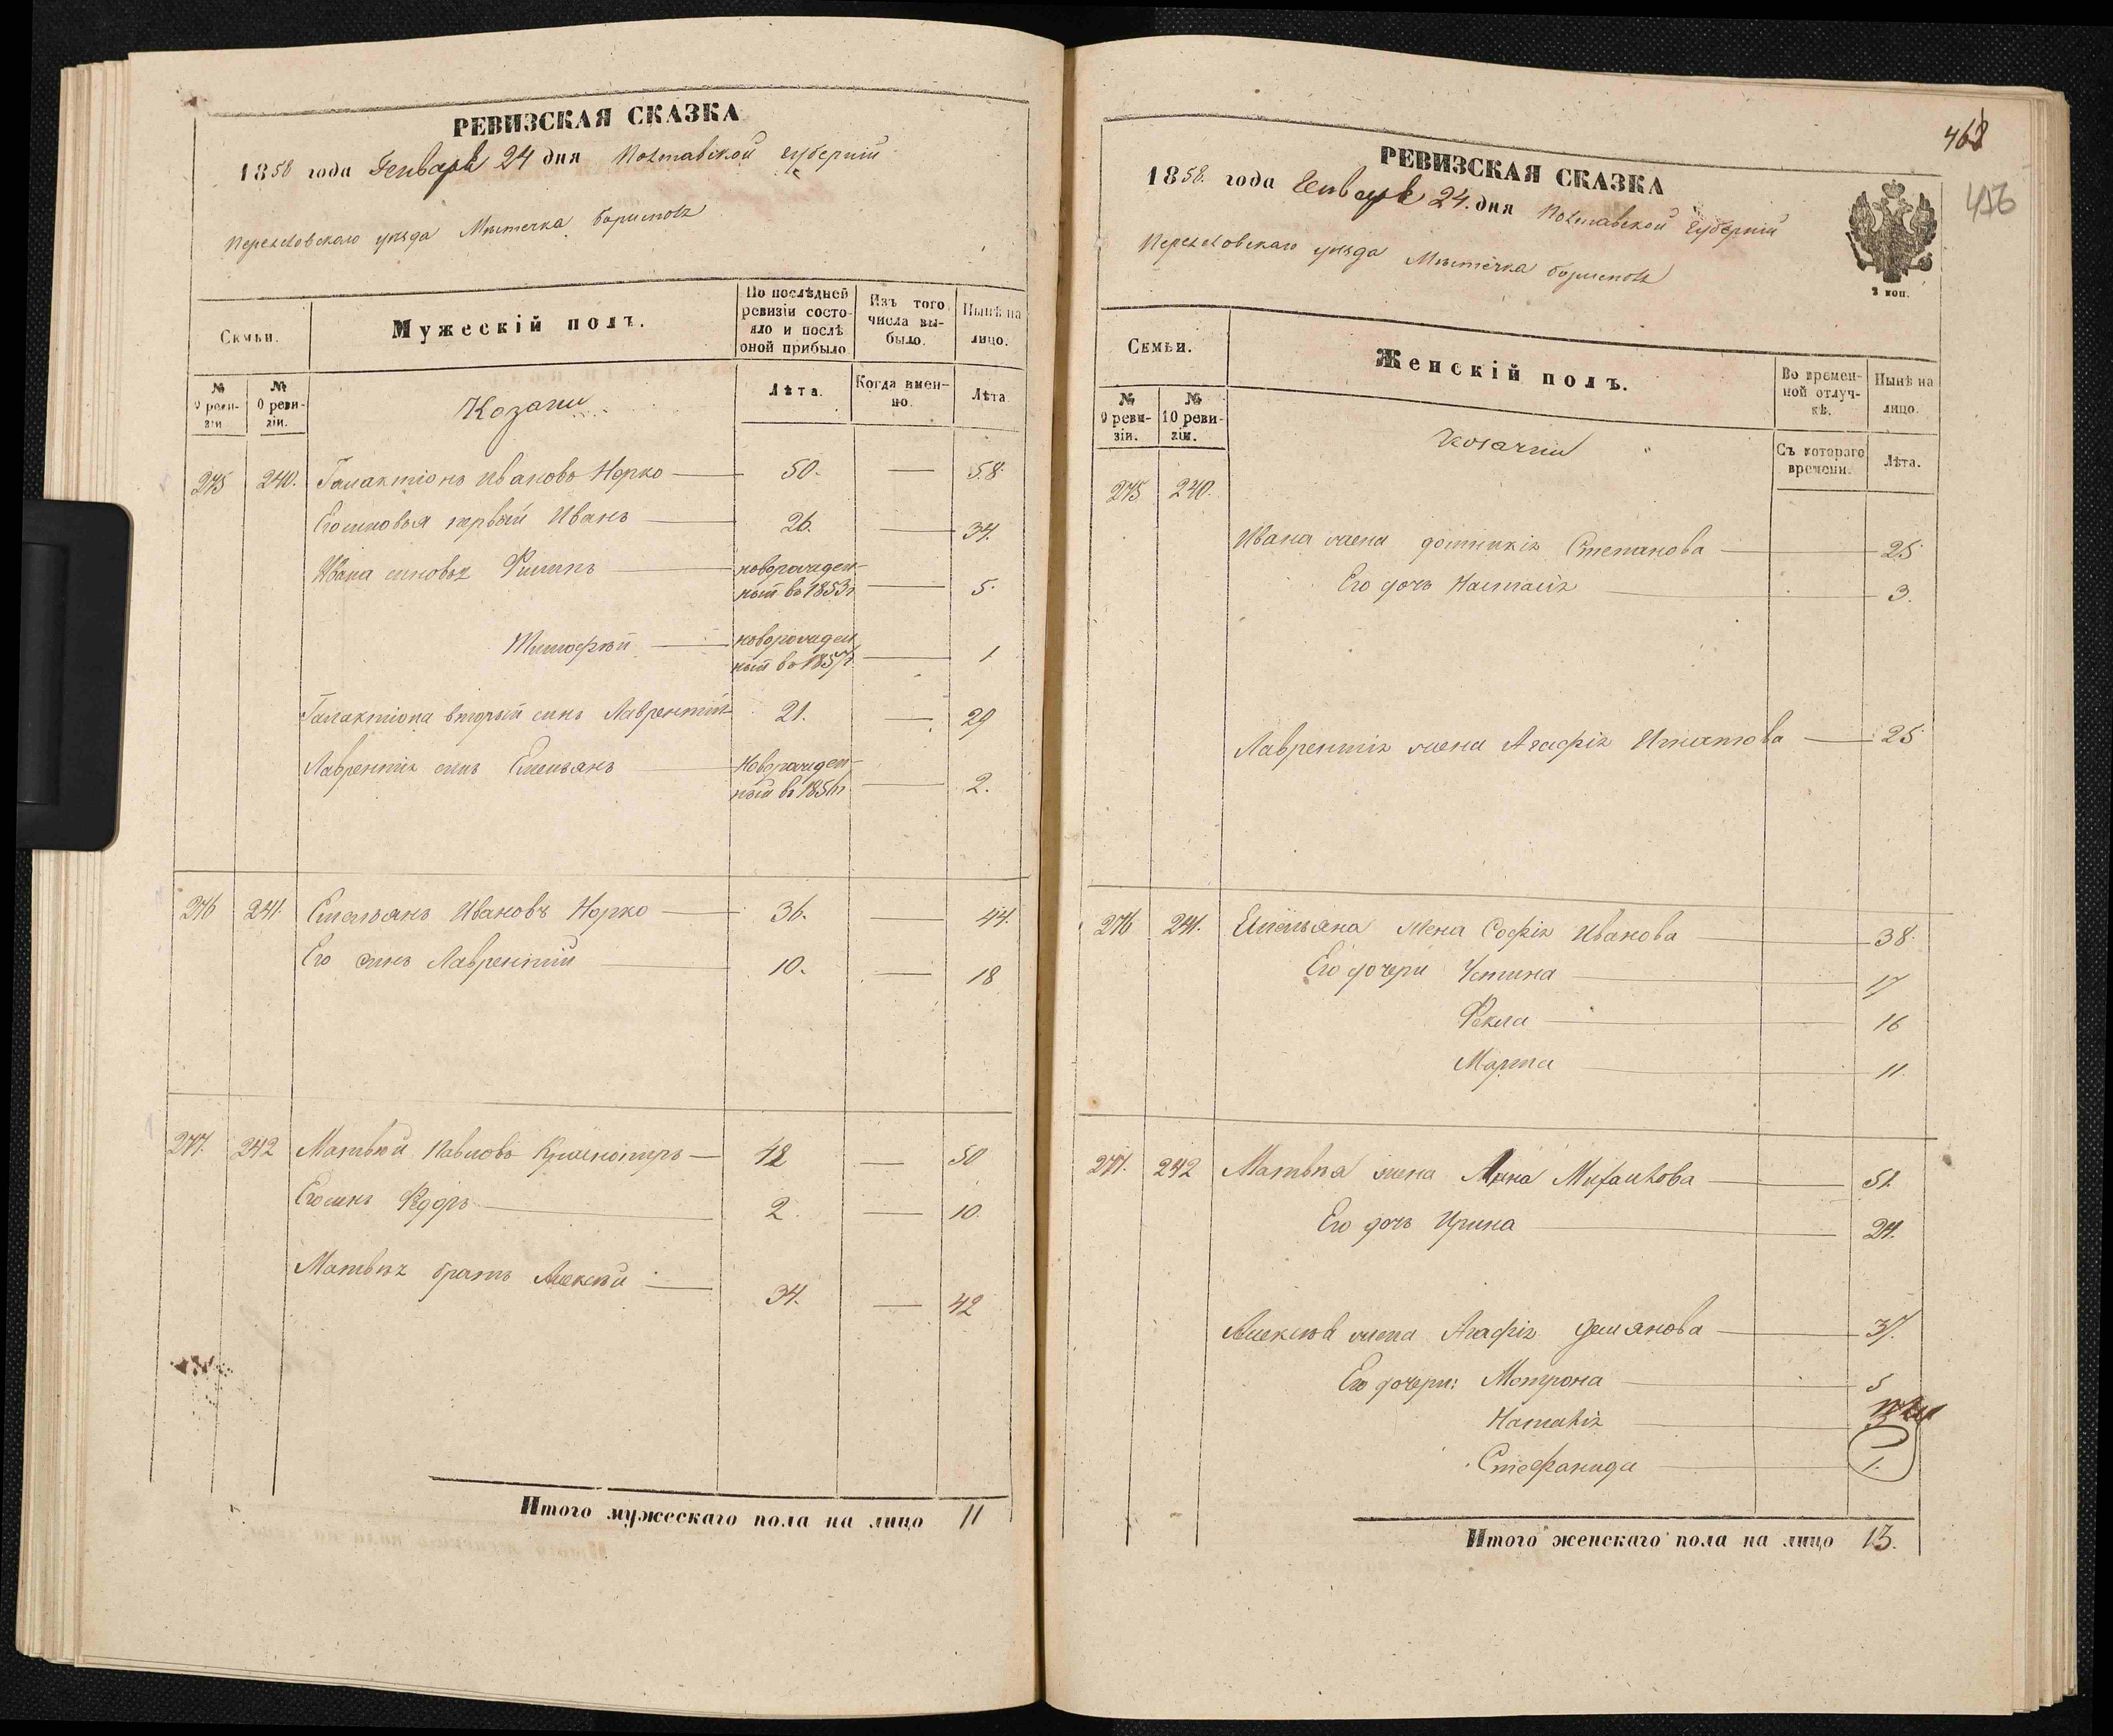 РЕВИЗСКАЯ СКАЗКА
1858 года Генваря 24 дня Полтавской губерніи
Переяславскаго уезда Местечка Борисполя
Семьи.
Мужескій полъ.
По послѣдней ревизіи состояло и послѣ оной прибыло.
Изъ того числа выбыло.
Нынѣ на лицо.
№ 9 ревизіи
№ 10 ревизіи.
Козаки
Лѣта.
Когда именно.
Лѣта
275 240. Галактіонъ Ивановъ Норко 50. 58.
Его сыновья первый Иванъ 26. 34.
Ивана сыновья Филипъ новорожденный въ 1853 г 5.
Тимофѣй новорожденный въ 1857 г 1
Галактіона вторый сынъ Лаврентій 21. 29
Лаврентія сынъ Емельянъ Новорожденный въ 1856 г 2.
276 241. Емельянъ Ивановъ Норко 36. 44.
Его сынъ Лаврентій 10. 18
277. 242 Матвѣй Павловъ 42 50
Его сынъ Федоръ 2. 10.
Матвѣя братъ Алексѣй 34. 42
Итого мужескаго пола на лицо 11
468
416
РЕВИЗСКАЯ СКАЗКА
1858. года Генваря 24. дня Полтавской Губерніи
Переяславскаго уезда Местечка Борисполя
2 коп.
Семьи.
Женскій полъ.
Во временной отлучкѣ.
Нынѣ на лицо.
№ 9 ревизіи.
№ 10 ревизіи.
Козачки
Съ котораго времени.
Лѣта.
275 240.
Ивана жена Домникія Степанова 25
Его дочь Настасія 3.
Лаврентія жена Агафія Игнатова 25
276 241. Емельяна жена Софія Иванова 38.
Его дочери Устина 17
Фекла 16
Марта 11.
277. 242 Матвѣя жена Анна Михайлова 51.
Его дочь Ирина 21.
Алексѣя жена Агафія Демянова 37.
Его дочери: Мотрона 5
Наталія
Стефанида 1.
Итого женскаго пола на лицо 13.